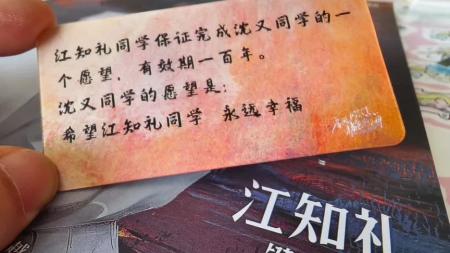 江知礼同学保证完成沈又同学的一
个愿望，有效期一百年。
沈又同学的愿望是：
希望江知礼同学 永远幸福
江知礼